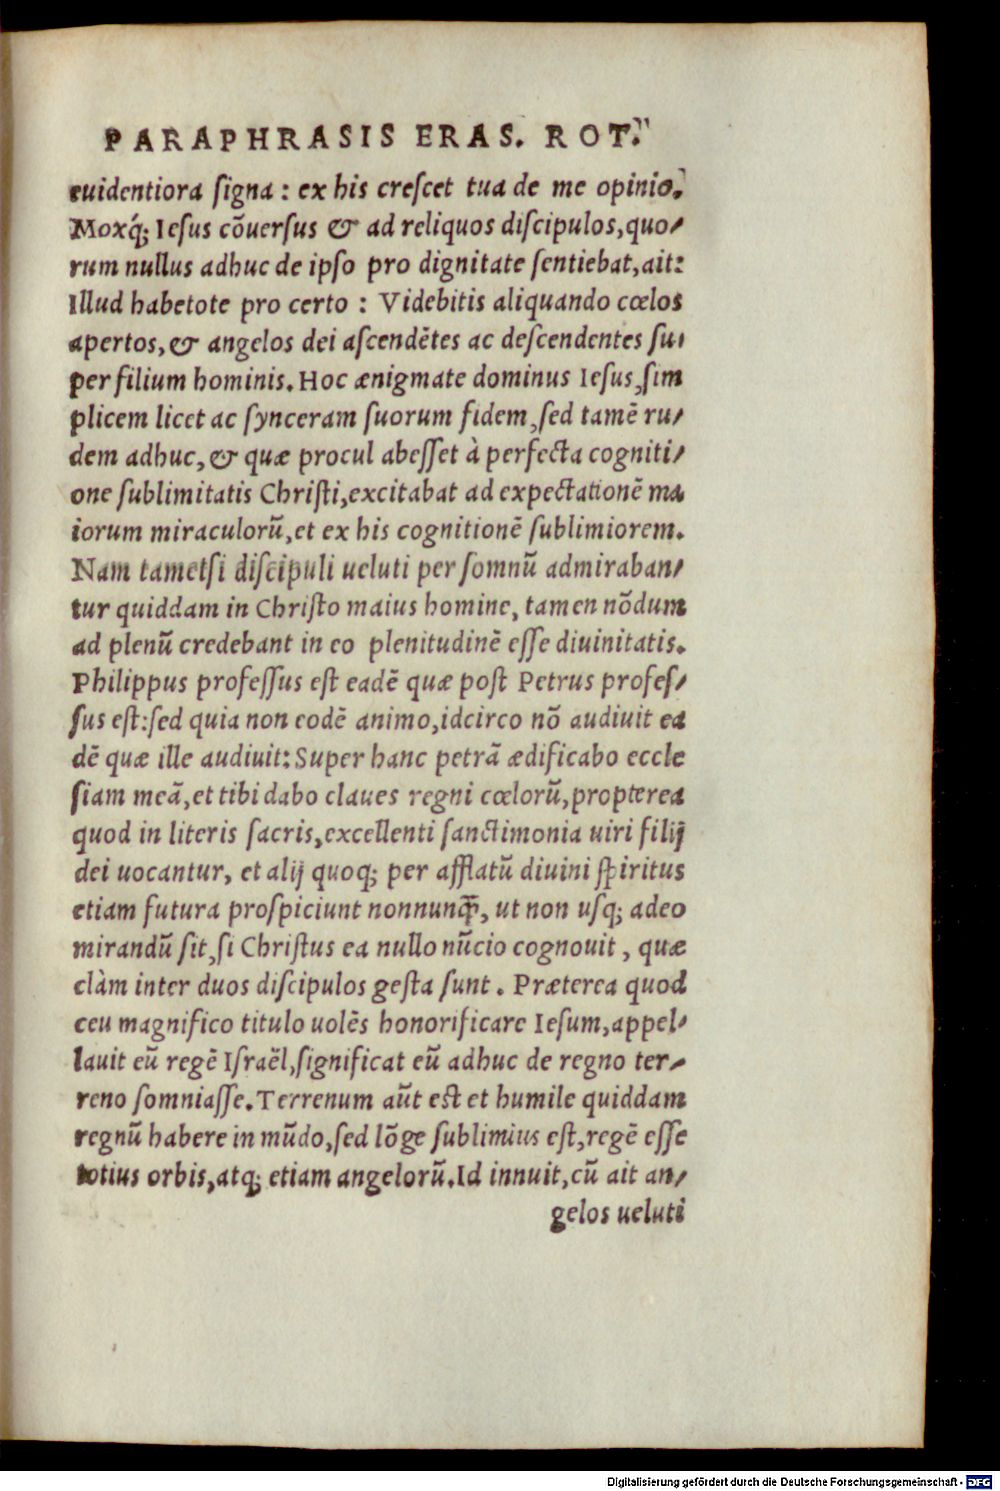 PARAPHRASIS ERAS. ROT.
euidentiora ſigna : ex his creſcet tua de me opinio.
Moxq́; Ieſus cōuerſus & ad reliquos diſcipulos, quo/
rum nullus adhuc de ipſo pro dignitate ſentiebat, ait:
Illud habetote pro certo : Videbitis aliquando cœlos
apertos, & angelos dei aſcendētes ac deſcendentes ſu/
per filium hominis. Hoc ænigmate dominus Ieſus, ſim
plicem licet ac ſynceram ſuorum fidem, ſed tamē ru/
dem adhuc, & quæ procul abeſſet à perfecta cogniti/
one ſublimitatis Chriſti, excitabat ad expectationē ma
iorum miraculorū, et ex his cognitionē ſublimiorem.
Nam tametſi diſcipuli ueluti per ſomnū admiraban/
tur quiddam in Chriſto maius homine, tamen nōdum
ad plenū credebant in eo plenitudinē eſſe diuinitatis.
Philippus profeſſus eſt eadē quæ poſt Petrus profeſ/
ſus eſt: ſed quia non eodē animo, idcirco nō audiuit ea
dē quæ ille audiuit: Super hanc petrā ædificabo eccle
ſiam meā, et tibi dabo claues regni cœlorū, propterea
quod in literis ſacris, excellenti ſanctimonia uiri filij
dei uocantur, et alij quoq; per afflatū diuini ſpiritus
etiam futura proſpiciunt nonnunq̄, ut non uſq; adeo
mirandū ſit, ſi Chriſtus ea nullo nūcio cognouit, quæ
clàm inter duos diſcipulos geſta ſunt. Præterea quod
ceu magnifico titulo uolēs honorificare Ieſum, appel/
lauit eū regē Iſraël, ſignificat eū adhuc de regno ter/
reno ſomniaſſe. Terrenum aūt eſt et humile quiddam
regnū habere in mūdo, ſed lōge ſublimius eſt, regē eſſe
totius orbis, atq; etiam angelorū. Id innuit, cū ait an/
gelos ueluti
Digitalisierung gefördert durch die Deutsche Forschungsgemeinschaft - DFG